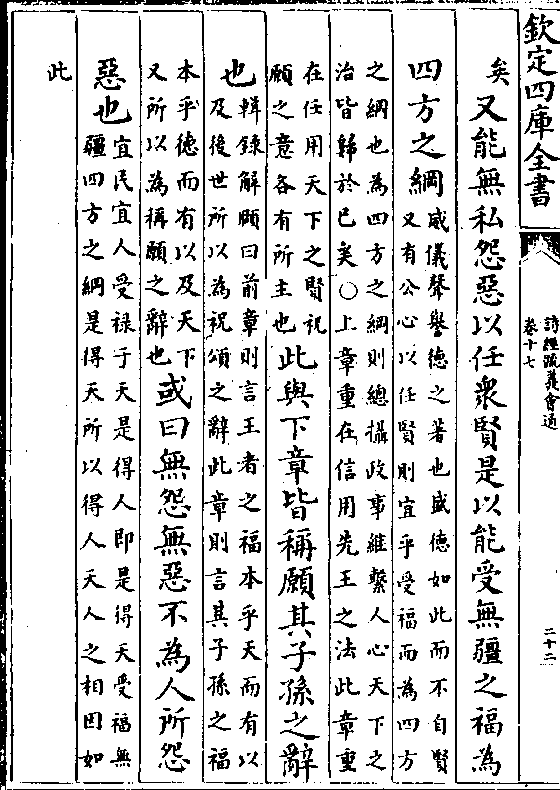 欽定四庫全書
詩經疏義會通
卷十七
二十二
矣又能無私怨惡以任衆賢是以能受無疆之福為
四方之綱
威儀聲譽德之著也盛德如此而不自賢
又有公心以任賢則宜乎受福而為四方
之綱也為四方之綱則總攝政事維繫人心天下之
治皆歸於己矣○上章重在信用先王之法此章重
在任用天下之賢祝
願之意各有所主也
此與下章皆稱願其子孫之辭
也
輯錄解頤曰前章則言王者之福本乎天而有以
及後世所以為祝頌之辭此章則言其子孫之福
本乎德而有以及天下
又所以為稱願之辭也
或曰無怨無惡不為人所怨
惡也
宜民宜人受禄于天是得人即是得天受福無
疆四方之綱是得天所以得人天人之相因如
此